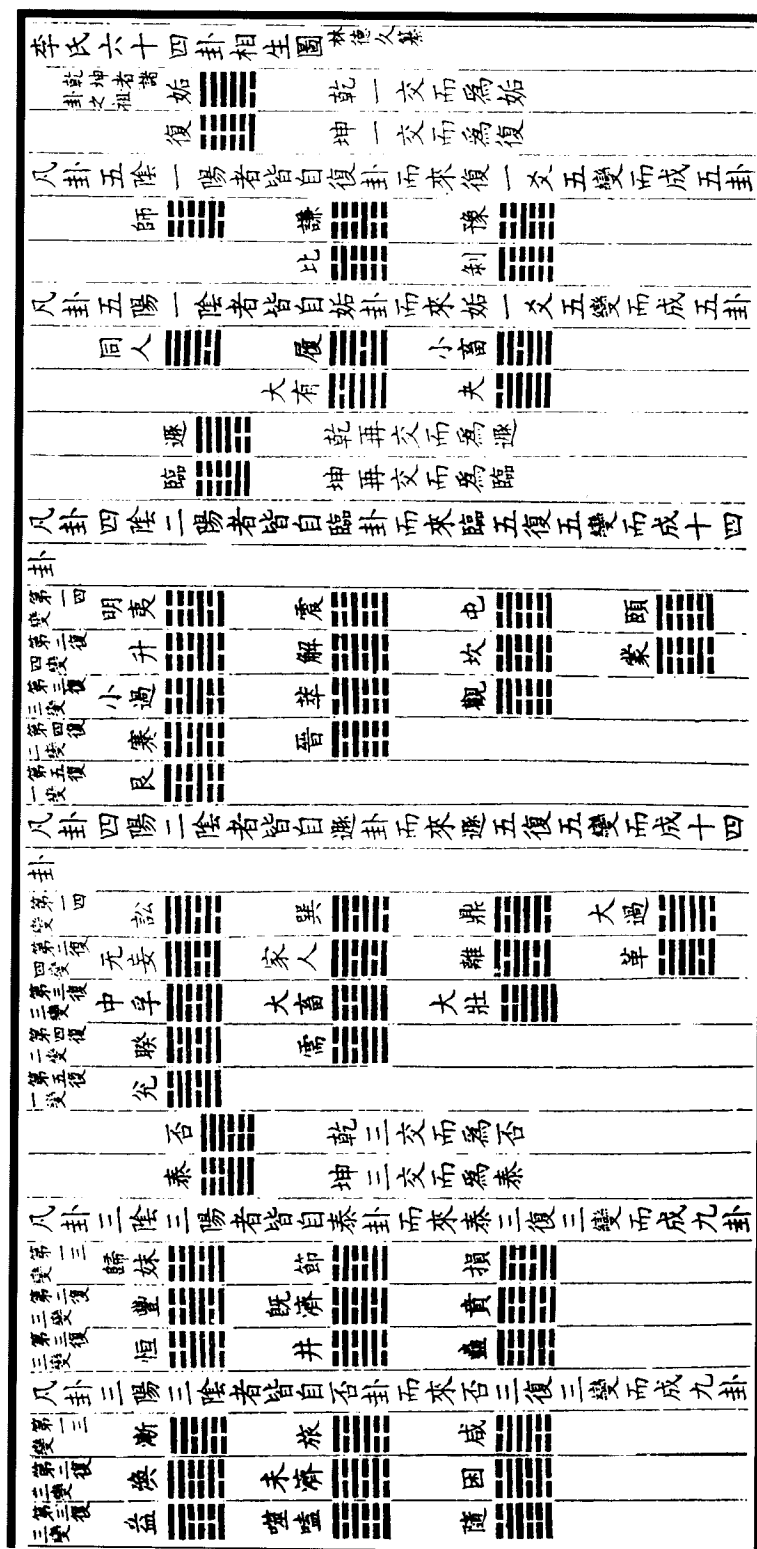 李氏六十四卦相生圖 林德久纂
乾坤者諸卦之祖 姤 乾一交而為姤
復 坤一交而為復
凡卦五陰一陽者皆自復卦而來復一爻五變而成五卦
師 謙 豫
比 剝
凡卦五陽一陰者皆自姤卦而來姤一爻五變而成五卦
同人 履 小畜
大有 夬
遯 乾再交而為遯
臨 坤再交而為臨
凡卦四陰二陽者皆自臨卦而來臨五復五變而成十四
卦
第一四變 明夷 震 屯 頤
第二復四變 升 解 坎 蒙
第三復三變 小過 萃 觀
第四復二變 蹇 晉
第五復一變 艮
凡卦四陽二陰者皆自遯卦而來遯五復五變而成十四
卦
第一四變 訟 巽 鼎 大過
第二復四變 无妄 家人 離 革
第三復三變 中孚 大畜 大壯
第四復二變 睽 需
第五復一變 兌
否 乾三交而為否
泰 坤三交而為泰
凡卦三陰三陽者皆自泰卦而來泰三復三變而成九卦
第一三變 歸妹 節 損
第二復三變 豐 既濟 賁
第三復三變 恒 井 蠱
凡卦三陽三陰者皆自否卦而來否三復三變而成九卦
第一三變 漸 旅 咸
第二復三變 渙 未濟 困
第三復三變 益 噬嗑 隨